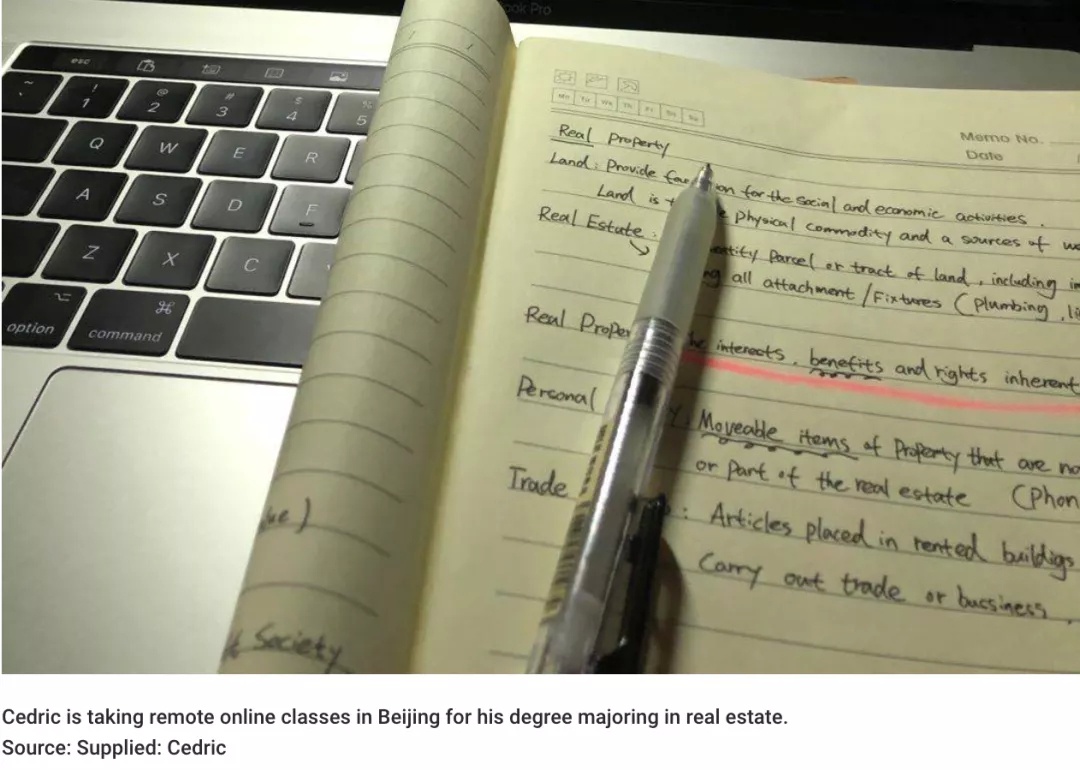 ook Pro
esc
~ ! 1 @ 2 # 3 $ 4 % 5
Q W E R
A S D F
Z X C
option ⌘ command
Mo Tu We Th Fr Sa Su
Memo No.
Date
Real Property
Land : Provide on for the social and economic activities .
Land is physical commodity and a sources of
Real Estate : parcel or tract of land , including
all attachment / Fixtures ( Plumbing ,
Real interests , benefits and rights inherent
Personal Moveable items of Property that are
or part of the real estate (
Trade : Articles placed in rented buildigs
Carry out trade or bussiness .
)
Society
Cedric is taking remote online classes in Beijing for his degree majoring in real estate.
Source: Supplied: Cedric